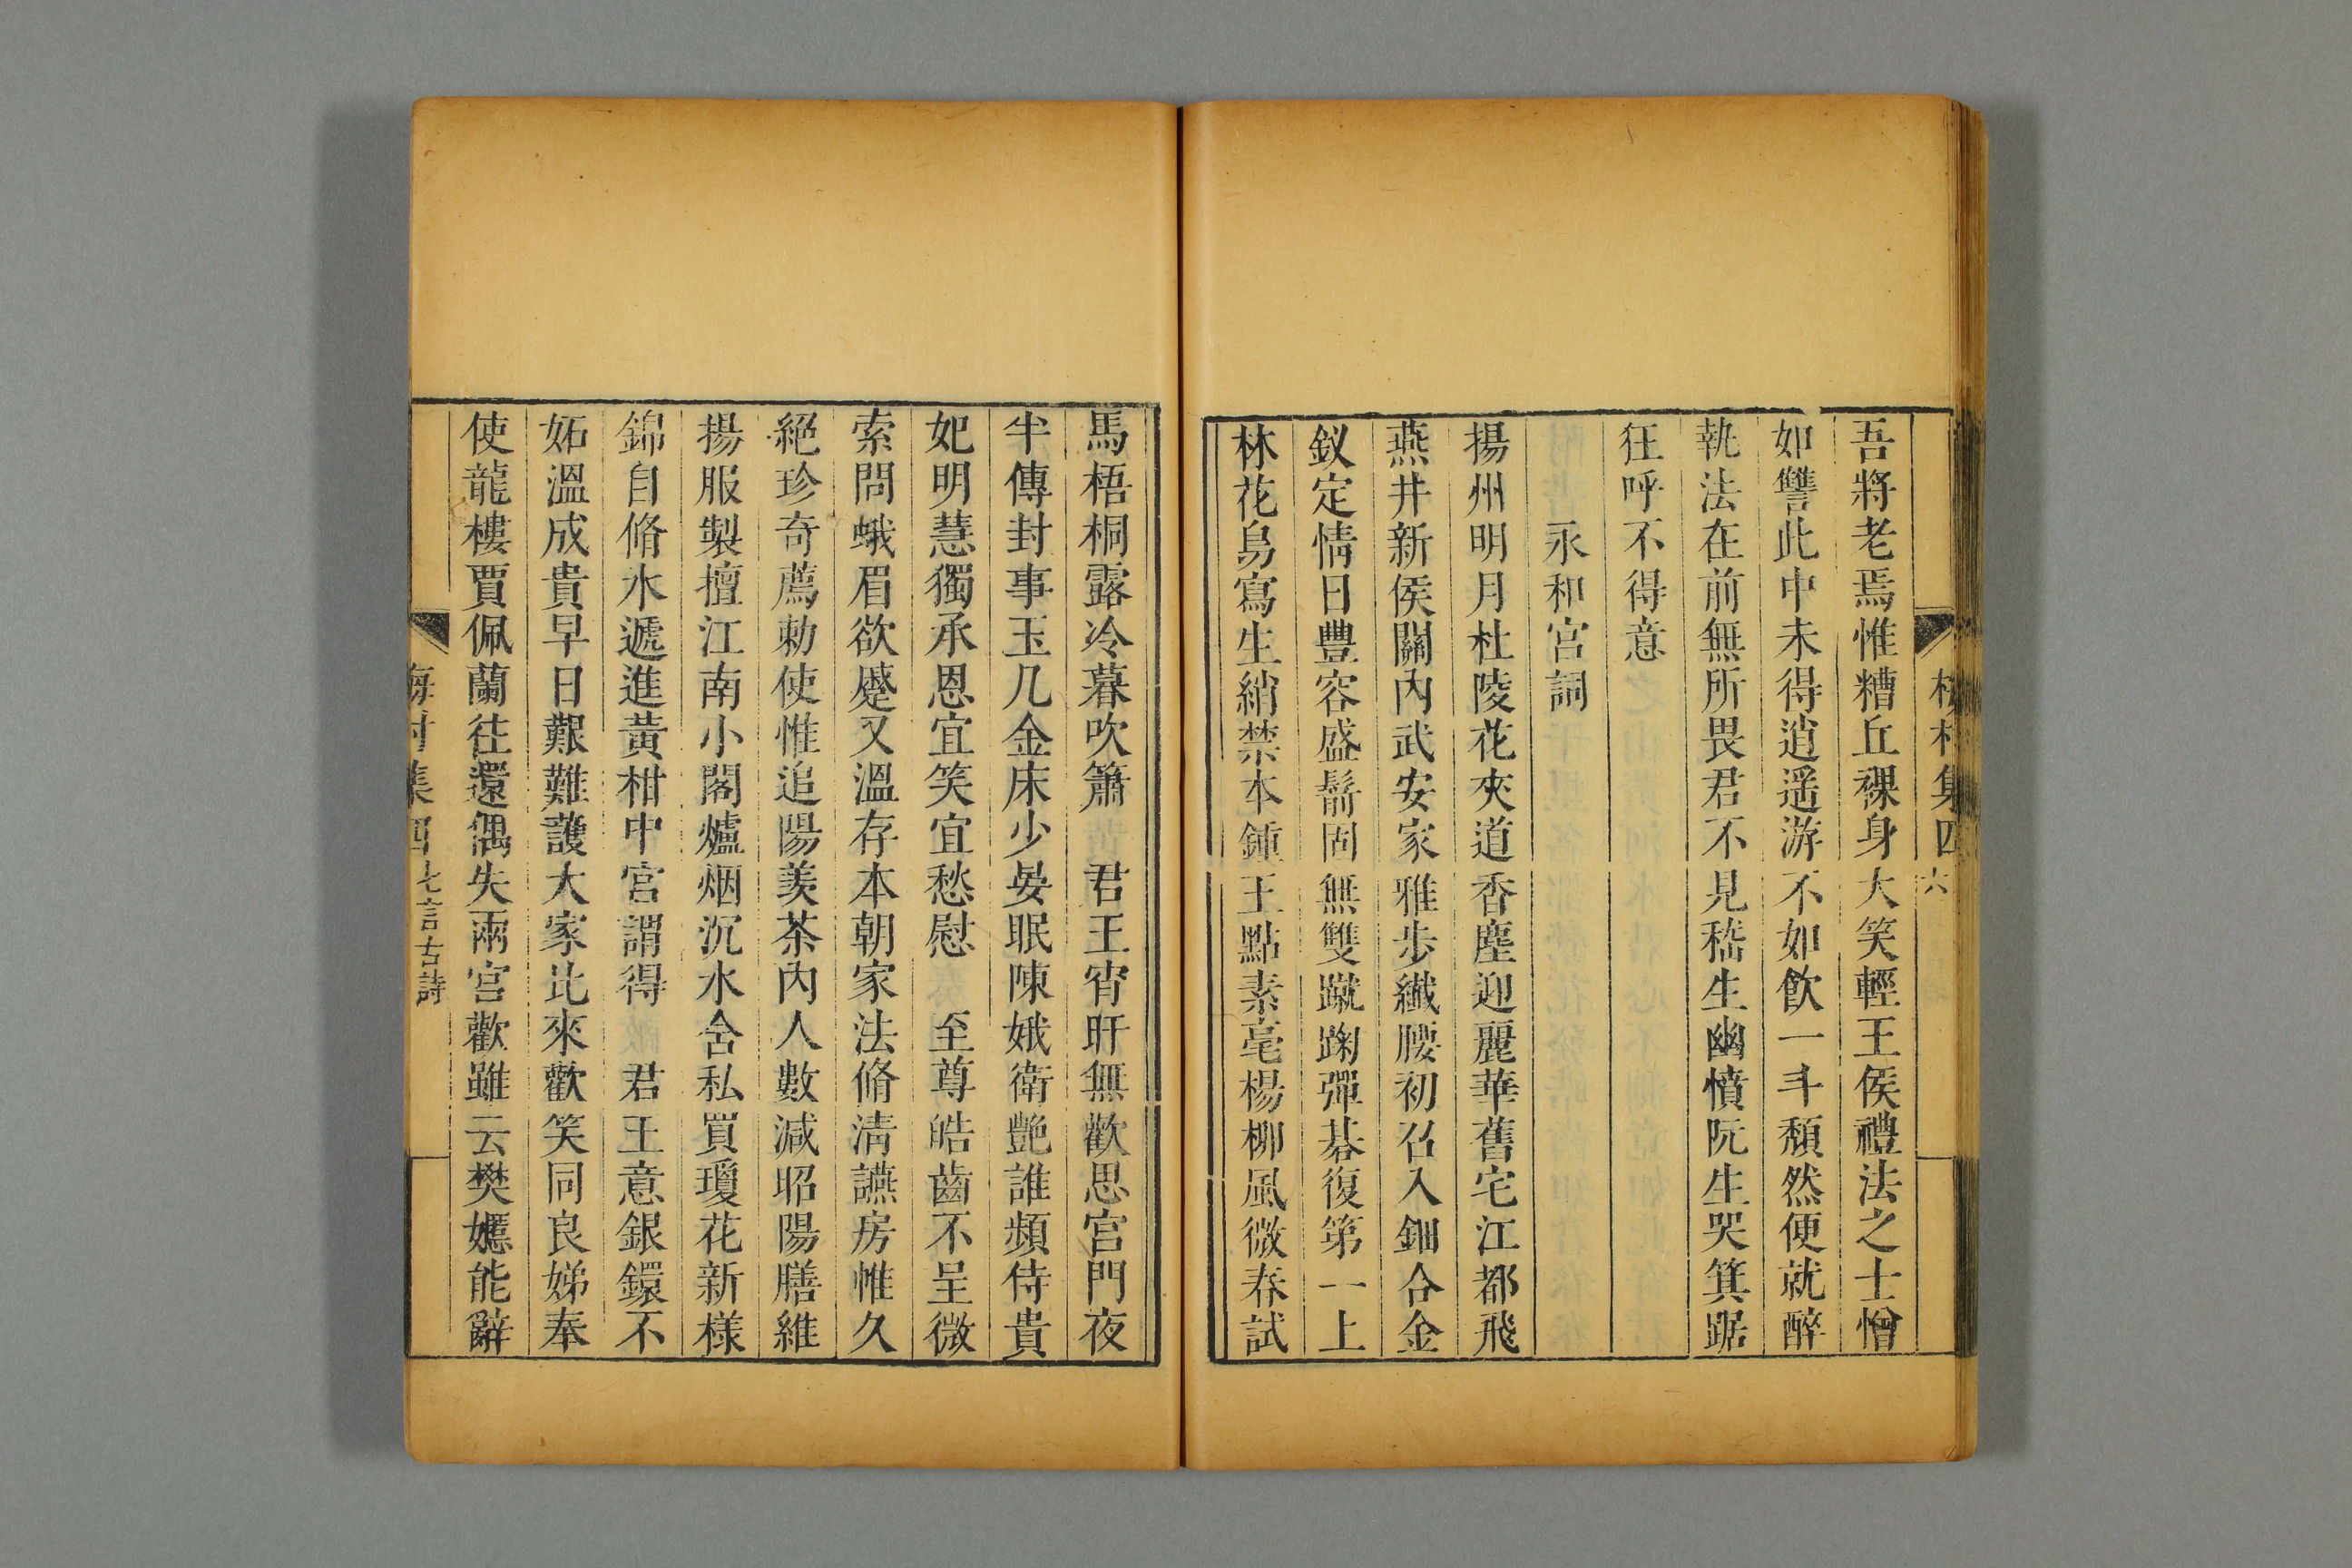 吾將老焉惟糟丘裸身大笑輕王侯禮法之士憎
如讐此中未得逍遥游不如飮一斗頽然便就醉
執法在前無所畏君不見嵇生幽憤阮生哭箕踞
狂呼不得意
永和宮詞
揚州明月杜陵花夾道香塵迎麗華舊宅江都飛
燕井新侯關內武安家雅步纖腰初召入鈿合金
釵定情日豐容盛鬋固無雙蹴踘彈碁復第一上
林花鳥寫生綃禁本鍾王點素毫楊柳風微春試
馬梧桐露冷暮吹簫　君王宵旰無歡思宮門夜
半傳封事玉几金床少晏眠陳娥衛艶誰頻侍貴
妃明慧獨承恩宜笑宜愁慰　至尊皓齒不呈微
索問蛾眉欲蹙又溫存本朝家法脩清讌房惟久
絕珍奇薦勅使惟追陽羨茶內人數減昭陽膳維
揚服製擅江南小閣爐烟沉水含私買瓊花新樣
錦自脩水遞進黃柑中宮謂得　君王意銀鐶不
妬溫成貴早日艱難護大家比來歡笑同良娣奉
使龍樓賈佩蘭往還偶失兩宮歡雖云樊嬺能辭
梅村集四七言古詩